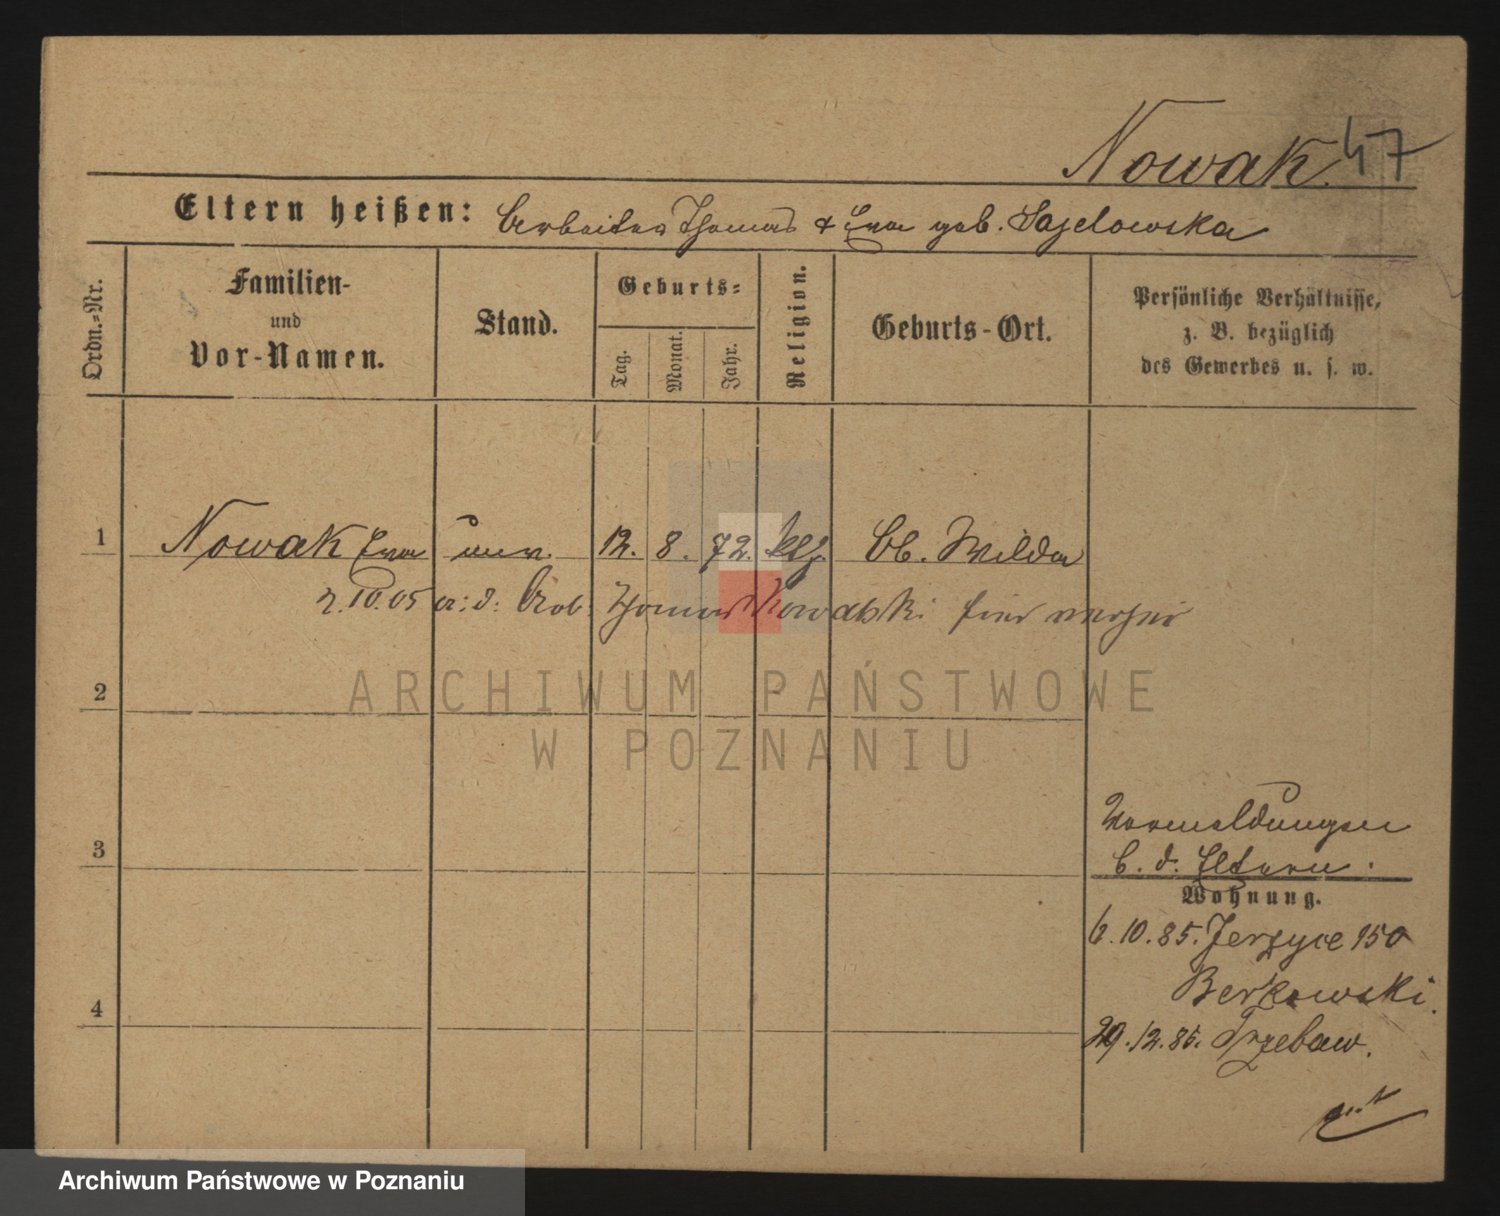 Nowak. 47
Eltern heißen: Arbeiter Thomas & Eva geb. Sajelowska
Ordn.=Nr.
Familien-
und
Vor-Namen.
Stand.
Geburts=
Tag.
Monat.
Jahr.
Religion.
Geburts-Ort.
Persönliche Verhältnisse,
z. B. bezüglich
des Gewerbes u. s. w.
1 Nowak Eva unv. 12. 8. 72. klg. Ob. Wilda
2.10.05 a: d: Arb. Thomas Kowalski hier verh
2
ARCHIWUM PAŃSTWOWE
W POZNANIU
Vormeldungen
3
b. d. Eltern.
Wohnung.
6.10.85. Jerzyce 150
Berkowski.
4
29.12.85. Trzebaw.
Archiwum Państwowe w Poznaniu